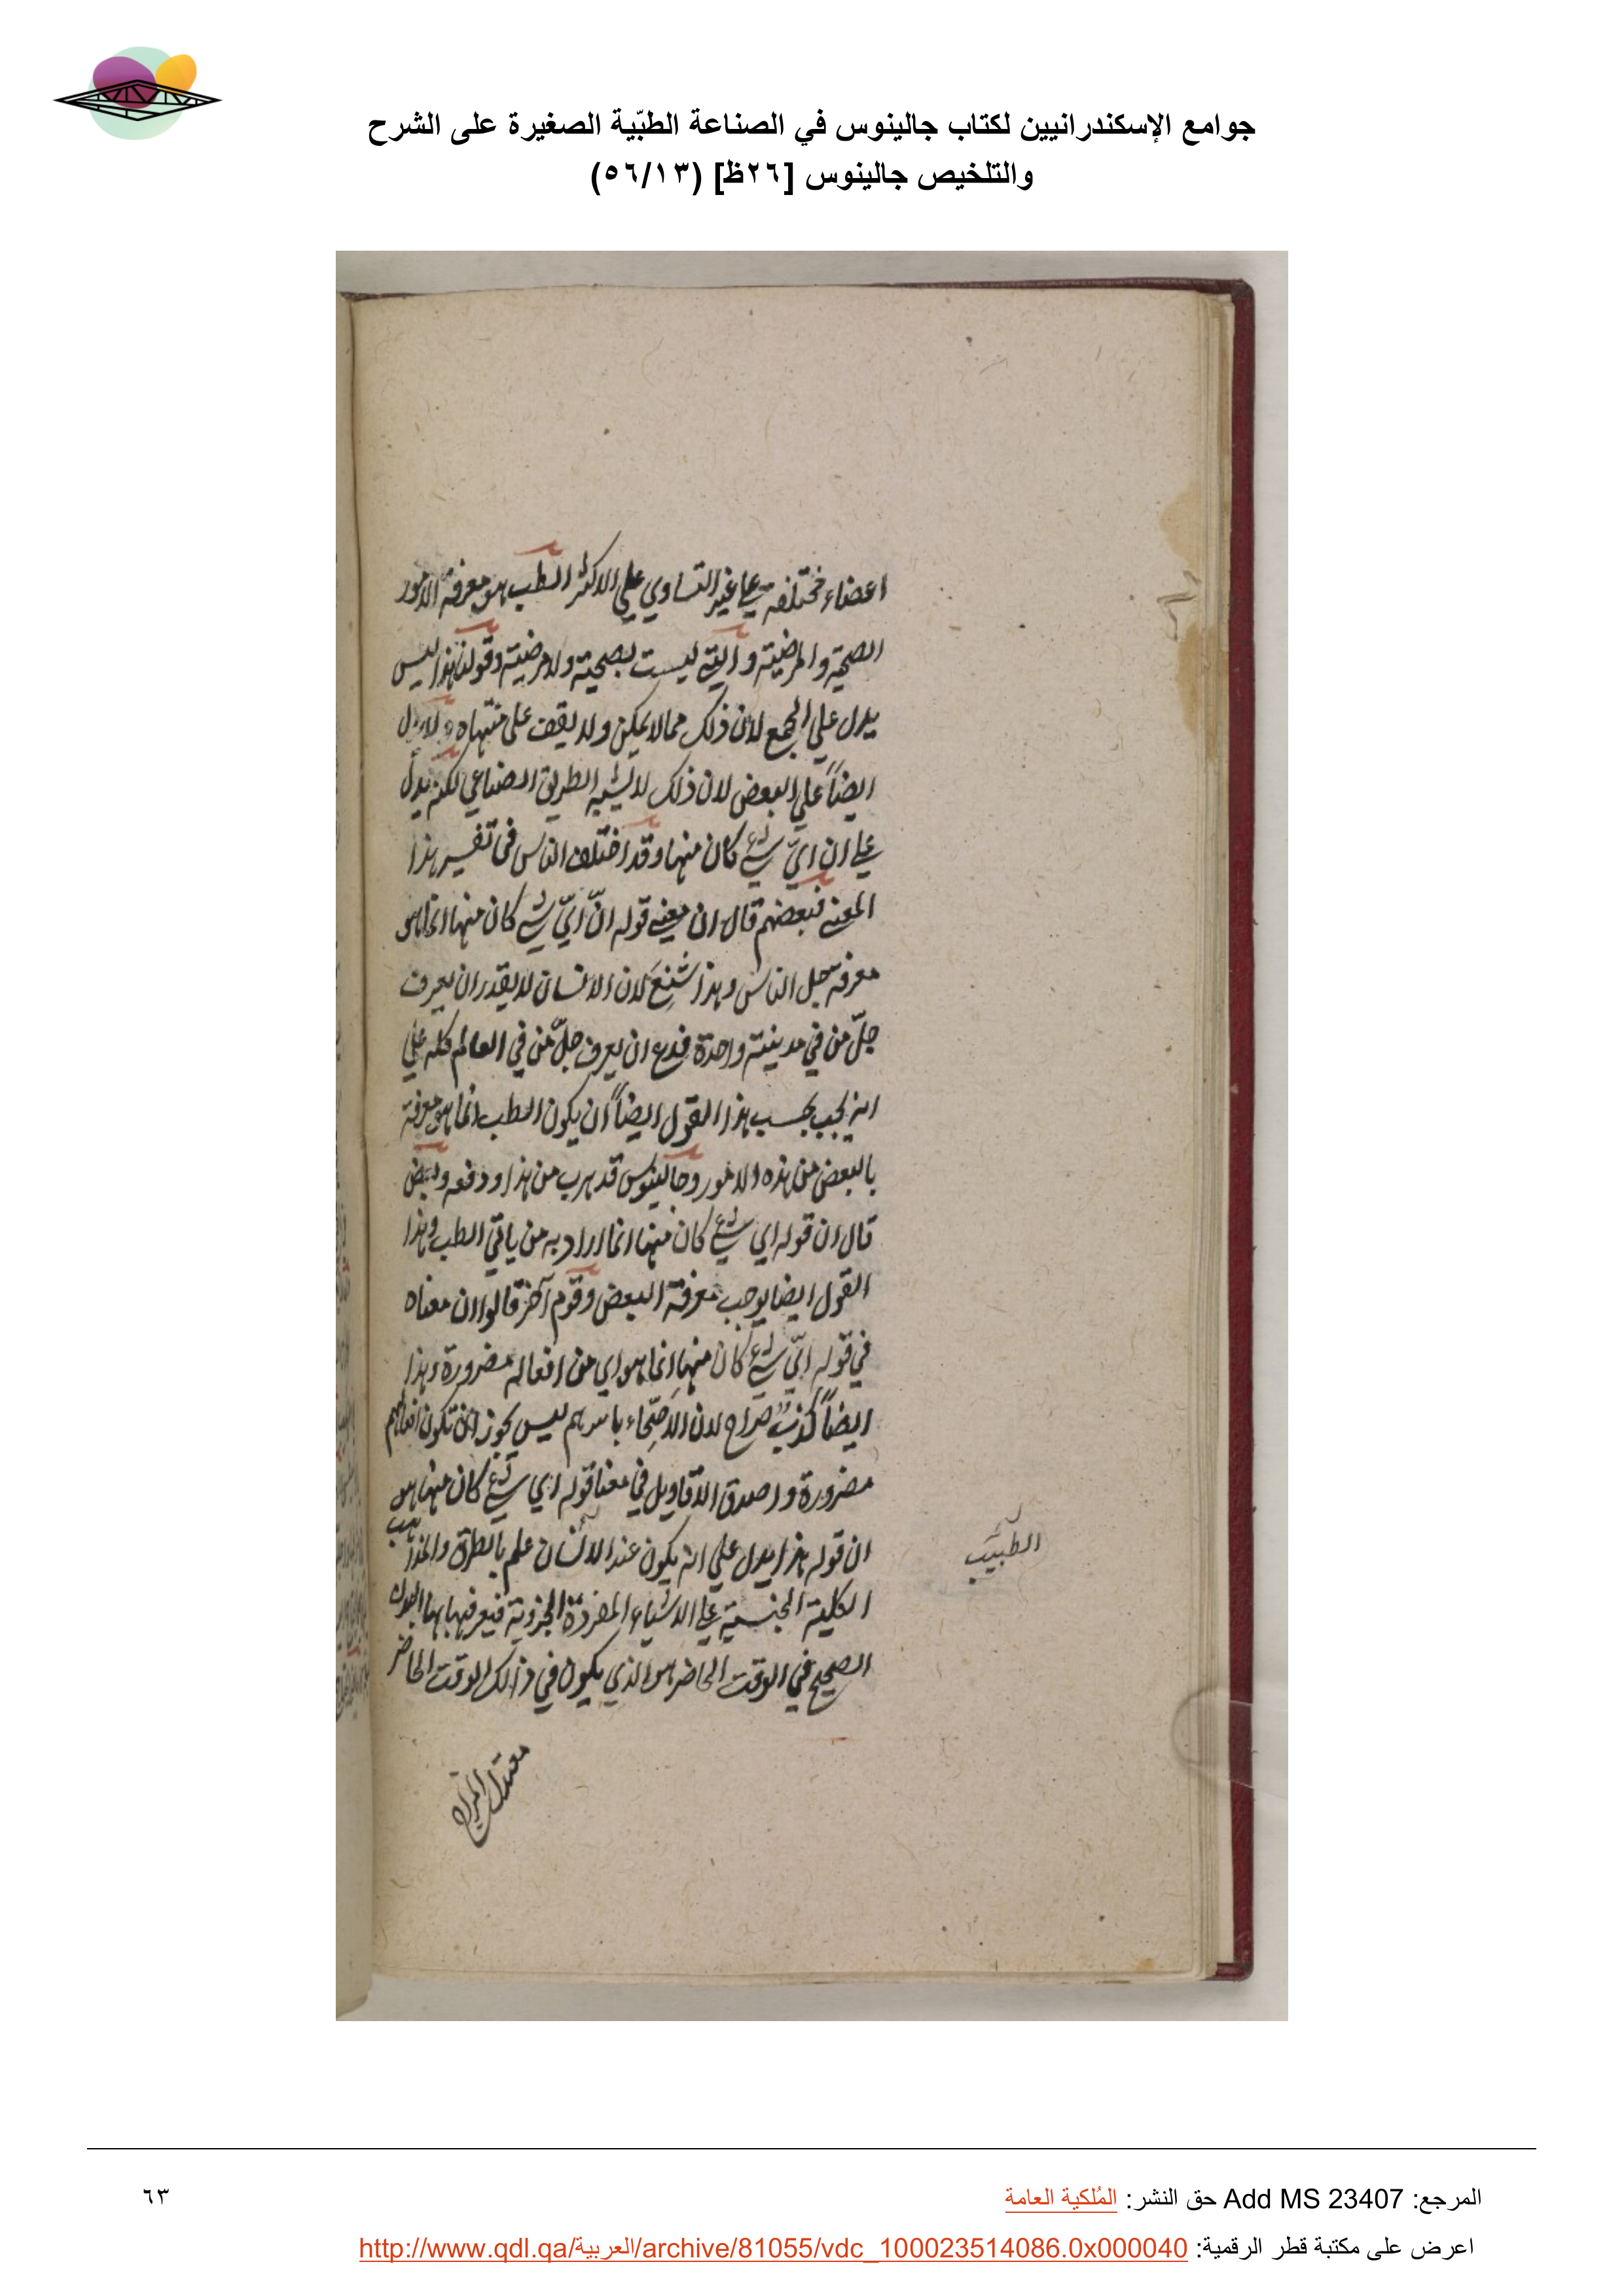 جوامع الإسكندرانيين لكتاب جالينوس في الصناعة الطبّية الصغيرة على الشرح
والتلخيص جالينوس [٢٦ظ] (٥٦/١٣)
اعضاء مختلفة علي غير التساوي علي الاكثر الطب هو معرفة الامور
الصحية والمرضية والتي ليست بصحية ولا مرضية وقولنا هذا ليس
يدل علي الجمع لان ذلك مما لا يمكن ولا يقف على منتهاه ولا يدل
ايضاً علي البعض لان ذلك لا يشبه الطريق الصناعي لكنه يدل
علي ان ايّ شيء كان منها وقد اختلف الناس في تفسير هذا
المعني فبعضهم قال ان معني قوله انّ ايّ شيء كان منها انما هو
معرفة جل الناس وهذا شنِع لان الانسان لا يقدر ان يعرف
جلّ من في مدينة واحدة فدع ان يعرف جلّ من في العالم كله علي
انه يجب بحسب هذا القول ايضاً ان يكون الطب انما هو معرفة
بالبعض من هذه الامور وجالينوس قد هرب من هذا ودفعه وبعض
قال ان قوله اي شيء كان منها انما اراد به من ياتي الطب وهذا
القول ايضا يوجب معرفة البعض وقوم آخر قالوا ان معناه
في قوله ايّ شيء كان منها انما هو اي من افعاله مضرورة وهذا
ايضاً كذبٌ صراح لان الاصحّاء باسرهم ليس يجوز ان تكون افعالهم
مضرورة واصدق الاقاويل في معنا قوله اي شيء كان منها هو
ان قوله هذا يدل علي انه يكون عند الانسان علم بالطرق والمذاهب
الطبيب
الكلية الجنسية علي الاشياء المفردة الجزوية فيعرفها بها
الصحيح في الوقت الحاضر هو الذي يكون في ذالك الوقت الحاضر
معتدل المزاج
المرجع: Add MS 23407 حق النشر: المُلكية العامة
٦٣
اعرض على مكتبة قطر الرقمية: http://www.qdl.qa/العربية/archive/81055/vdc_100023514086.0x000040